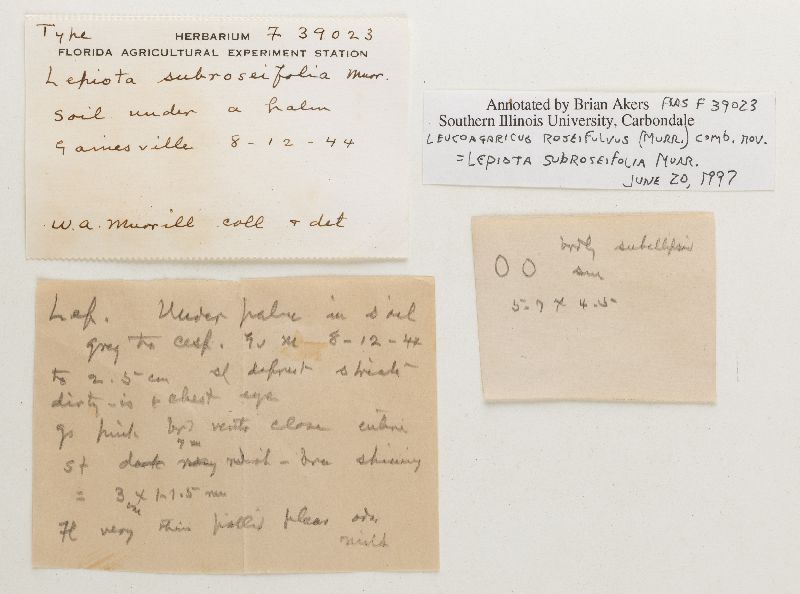 Type HERBARIUM F 39023
FLORIDA AGRICULTURAL EXPERIMENT STATION
Lepiota subroseifolia Murr.
Soil under a palm
Gainesville 8-12-44
W.A. Murrill coll & det
Annotated by Brian Akers FLAS F 39023
Southern Illinois University, Carbondale
LEUCOAGARICUS ROSEIFULVUS (MURR.) COMB. NOV.
= LEPIOTA SUBROSEIFOLIA MURR.
JUNE 20, 1997
brdly subellipsoid
sm
5-7 x 4.5
Lep. Under palm in soil
greg to cesp. Gv M 8-12-44
to 2.5 cm sl deprest striate
dirty-is & chest eye
gs pink brd ventr close entire
st dark rosy redish-brn shining
= 3 x 1-1.5 mm
cm
Fl very thin pallid pleas odor
mild